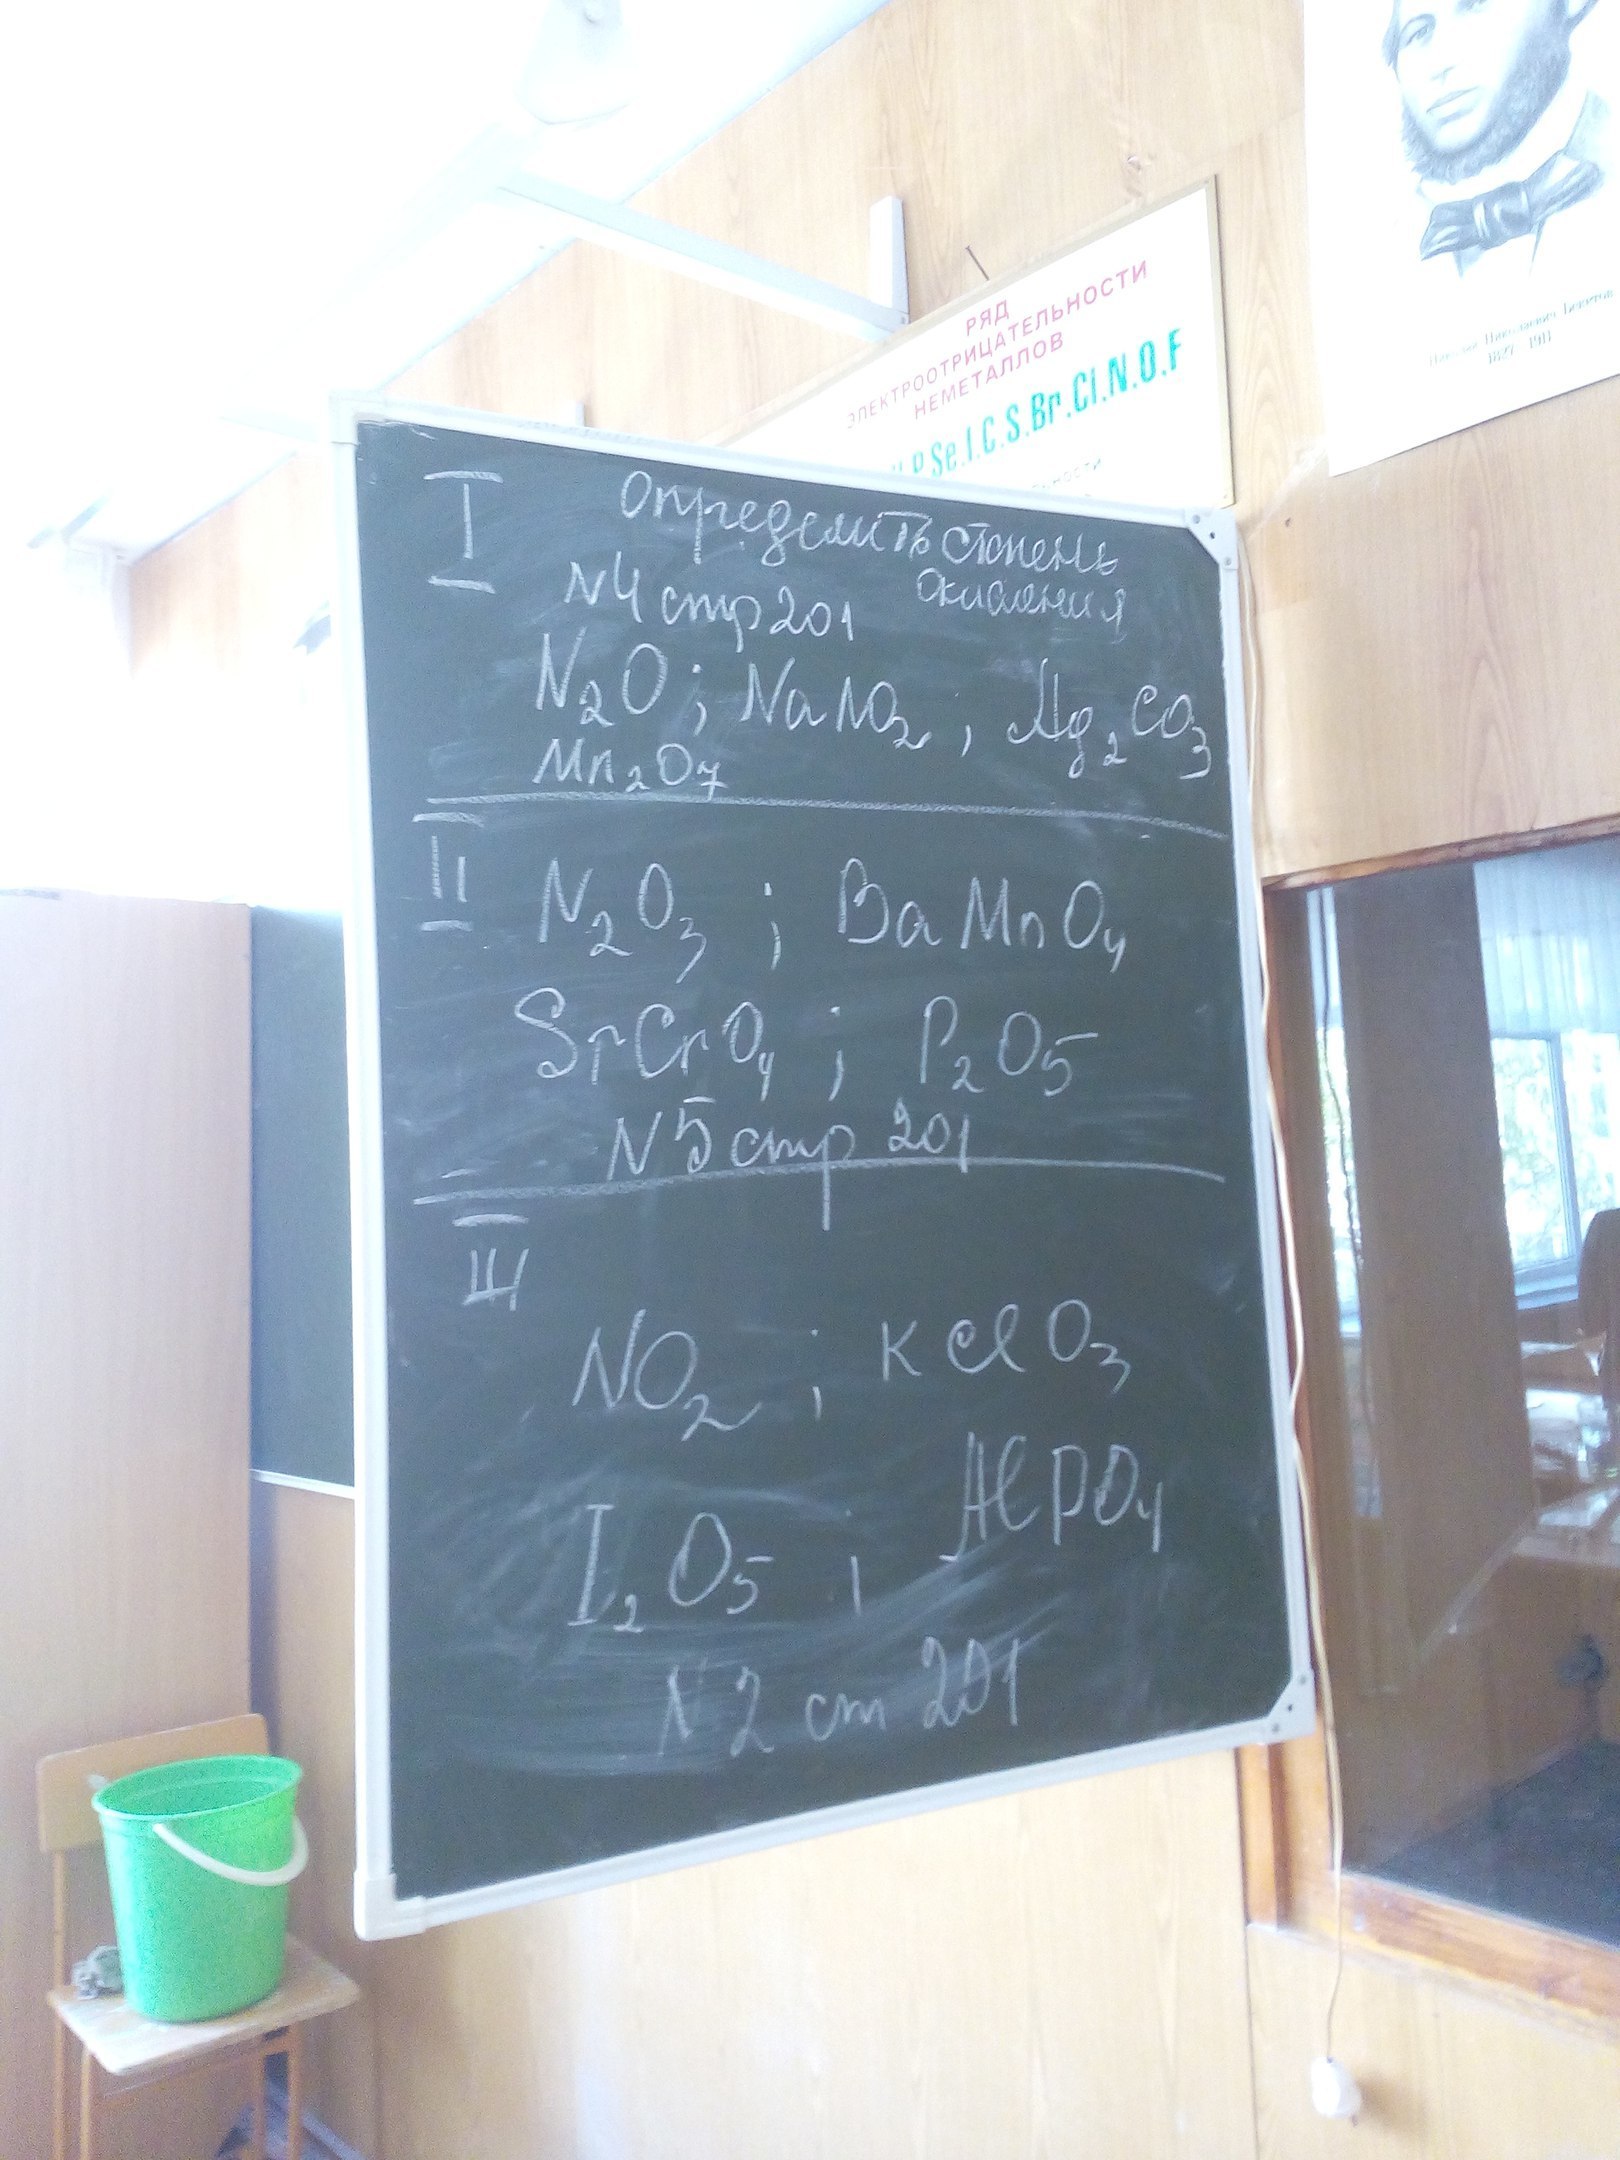 РЯД
ЭЛЕКТРООТРИЦАТЕЛЬНОСТИ
НЕМЕТАЛЛОВ
P.Se.I.C.S.Br.Cl.N.O.F
Николай Николаевич Бекетов
1827 - 1911
I
Определить степень
окисления
N4 стр 201
N2O; NaNO2, Ag2CO3
Mn2O7
II
N2O3; BaMnO4
SrCrO4; P2O5
N5 стр 201
III
NO2; KClO3
I2O5, AlPO4
N2 ст 201